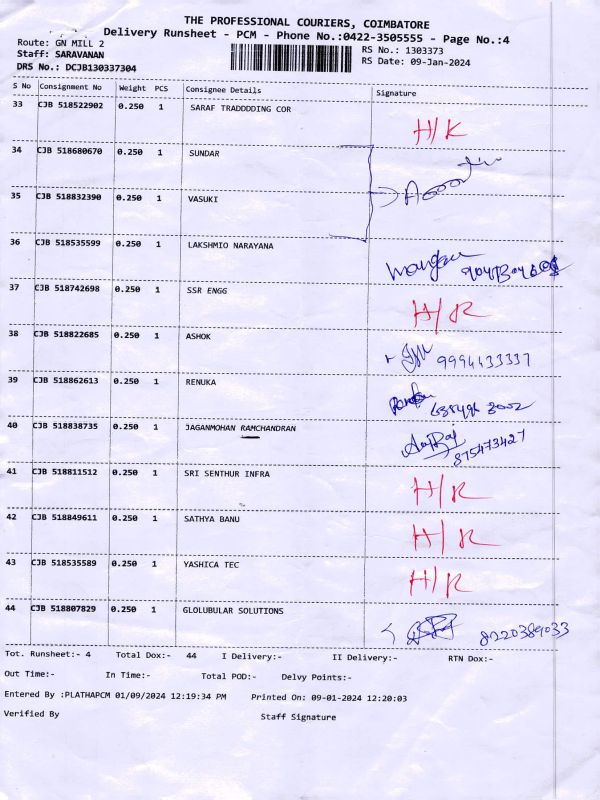 THE PROFESSIONAL COURIERS, COIMBATORE
Delivery Runsheet - PCM - Phone No.:0422-3505555 - Page No.:4
Route: GN MILL 2
RS No.: 1303373
Staff: SARAVANAN
RS Date: 09-Jan-2024
DRS No.: DCJB130337304
S No Consignment No Weight PCS Consignee Details Signature
33 CJB 518522902 0.250 1 SARAF TRADDDDING COR
34 CJB 518680670 0.250 1 SUNDAR
35 CJB 518832390 0.250 1 VASUKI
36 CJB 518535599 0.250 1 LAKSHMIO NARAYANA
37 CJB 518742698 0.250 1 SSR ENGG H/R
38 CJB 518822685 0.250 1 ASHOK 9994433337
39 CJB 518862613 0.250 1 RENUKA
40 CJB 518838735 0.250 1 JAGANMOHAN RAMCHANDRAN 875473427
41 CJB 518811512 0.250 1 SRI SENTHUR INFRA H/R
42 CJB 518849611 0.250 1 SATHYA BANU H/R
43 CJB 518535589 0.250 1 YASHICA TEC H/R
44 CJB 518807829 0.250 1 GLOLUBULAR SOLUTIONS 8220389033
Tot. Runsheet:- 4 Total Dox:- 44 I Delivery:- II Delivery:- RTN Dox:-
Out Time:- In Time:- Total POD:- Delvy Points:-
Entered By :PLATHAPCM 01/09/2024 12:19:34 PM Printed On: 09-01-2024 12:20:03
Verified By Staff Signature